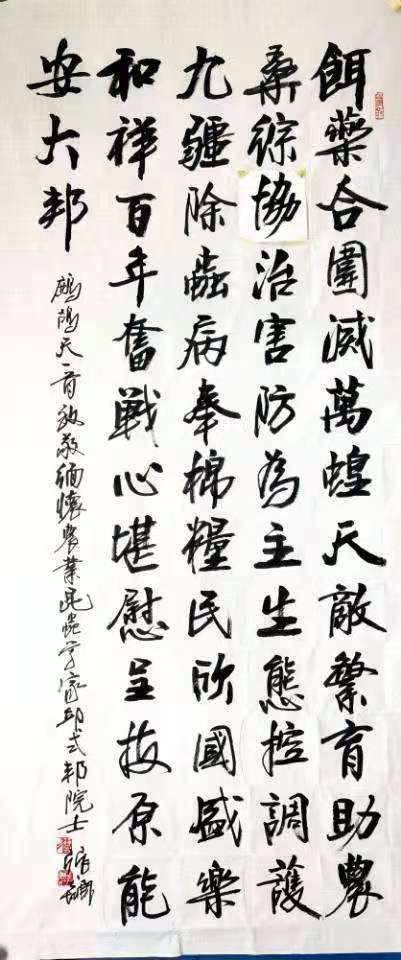 餌藥合圍滅萬蝗天敵繁育助農
桑綜協治害防為主生態控調護
九疆除蟲病奉棉糧民欣國盛樂
和祥百年奮戦心堪慰呈技原能
安大邦
鷓鴣天一首致敬緬懷農業昆蟲学家邱式邦院士